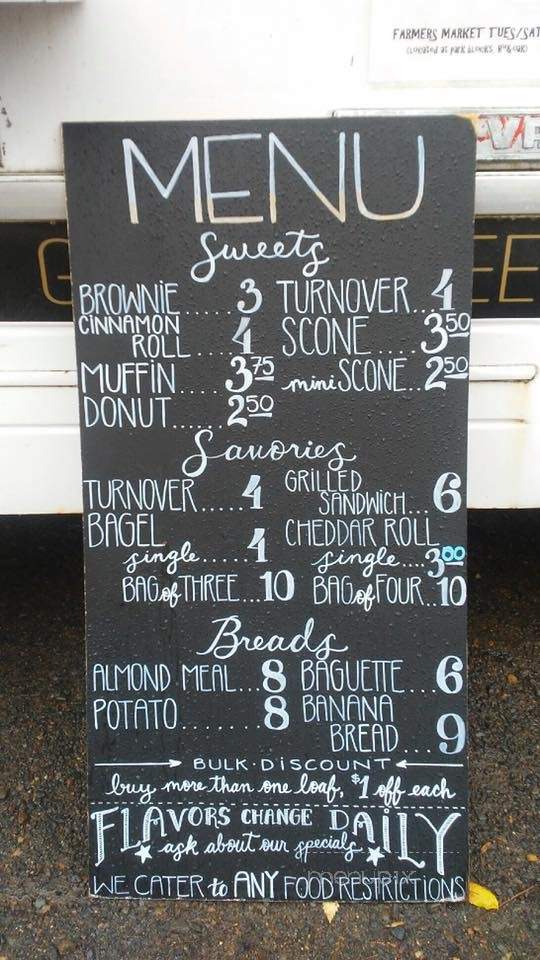 FARMERS MARKET TUES/SAT
MENU
Sweets
BROWNIE..... 3 TURNOVER... 4
CINNAMON ROLL.... 4 SCONE...... 3 50
MUFFIN.... 3 75 mini SCONE... 2 50
DONUT...... 2 50
Savories
TURNOVER..... 4 GRILLED SANDWICH... 6
BAGEL CHEDDAR ROLL
single..... 4 single.... 3 00
BAG of THREE... 10 BAG of FOUR.. 10
Breads
ALMOND MEAL... 8 BAGUETTE... 6
POTATO........ 8 BANANA BREAD... 9
BULK·DISCOUNT
buy more than one loaf, $1 off each
FLAVORS CHANGE DAILY
ask about our specials
WE CATER to ANY FOOD RESTRICTIONS
menupix